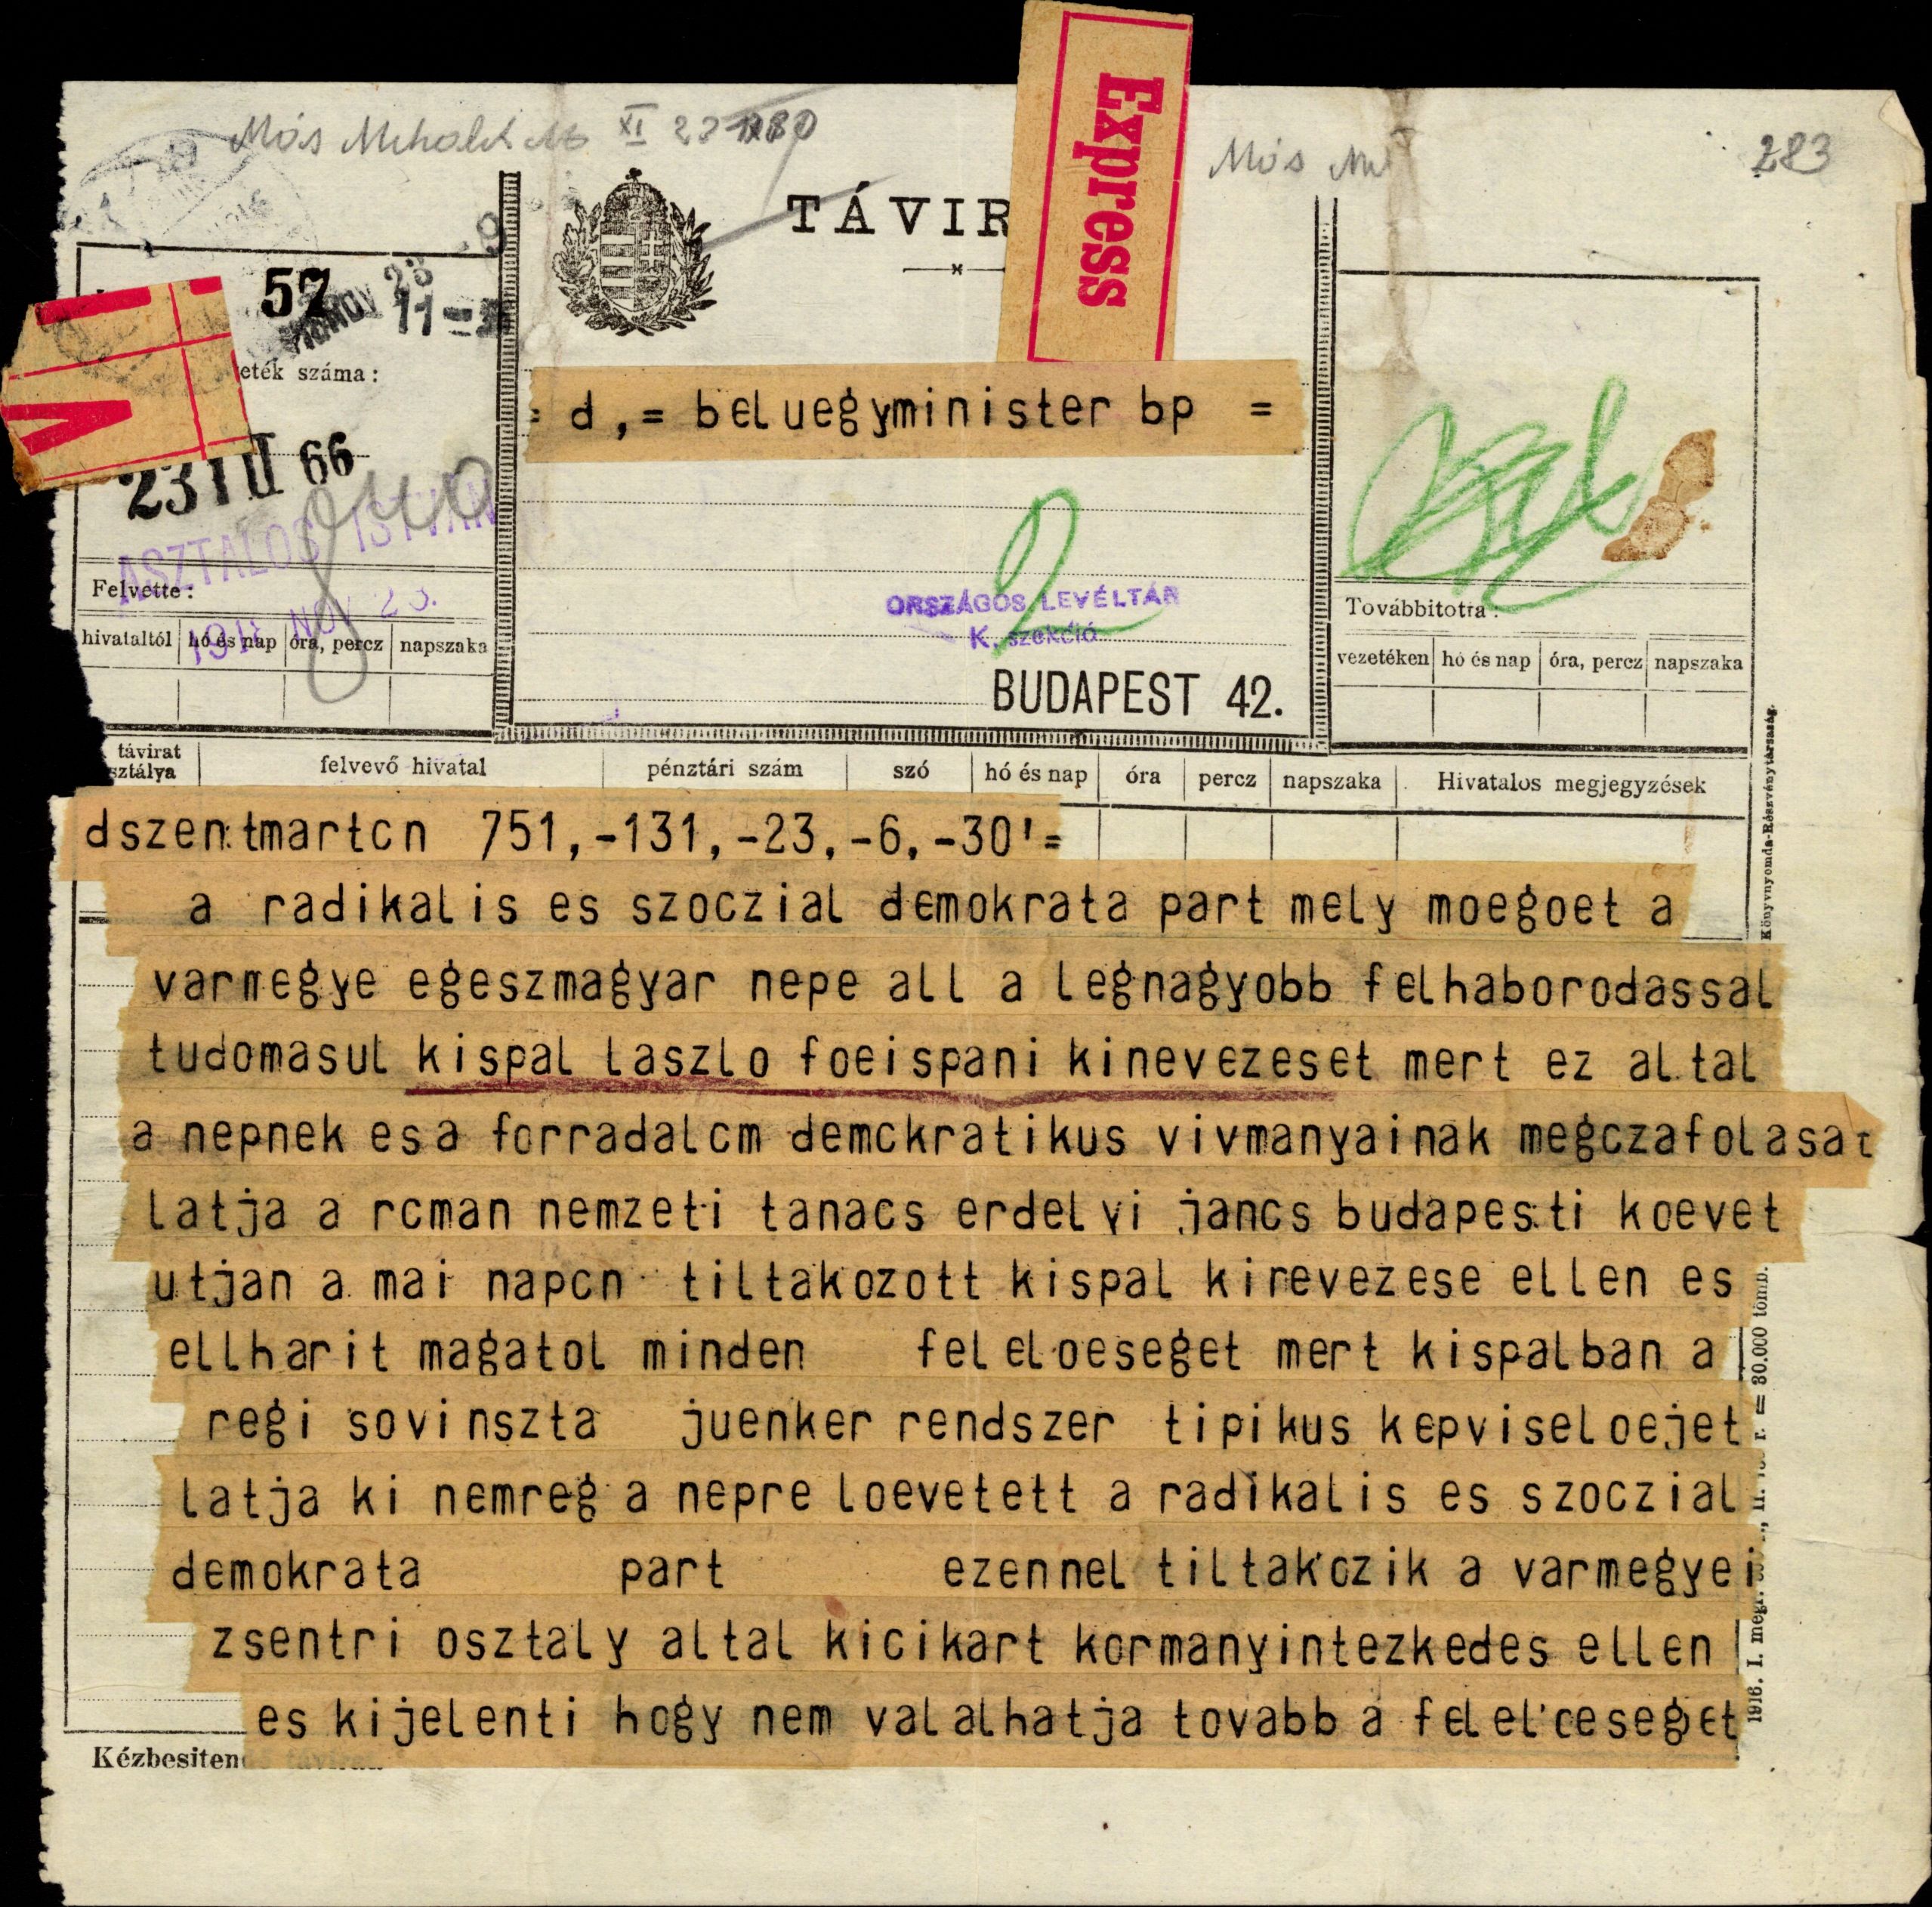 XI 23
283
TÁVIR
Express
57
11
eték száma:
23 66
= d,= beluegyminister bp =
ASZTALOS ISTVÁN
Felvette:
NOV 23.
hivataltól hó és nap óra, percz napszaka
2
ORSZÁGOS LEVÉLTÁR
K. szekció
BUDAPEST 42.
Továbbitotta:
vezetéken hó és nap óra, percz napszaka
távirat
sztálya
felvevő hivatal pénztári szám szó hó és nap óra percz napszaka Hivatalos megjegyzések
dszentmartcn 751,-131,-23,-6,-30'=
a radikalis es szoczial demokrata part mely moegoet a
varmegye egeszmagyar nepe all a legnagyobb felhaborodassal
tudomasul kispal laszlo foeispani kinevezeset mert ez altal
a nepnek esa forradalcm demckratikus vivmanyainak megczafolasat
latja a rcman nemzeti tanacs erdelyi jancs budapesti koevet
utjan a mai napcn tiltakozott kispal kirevezese ellen es
ellharit magatol minden feleloeseget mert kispalban a
regi sovinszta juenker rendszer tipikus kepviseloejet
latja ki nemreg a nepre loevetett a radikalis es szoczial
demokrata part ezennel tiltakozik a varmegyei
zsentri osztaly altal kicikart kormanyintezkedes ellen
es kijelenti hogy nem valalhatja tovabb a felelceseget
Kézbesiten
Könyvnyomda-Részvénytársaság.
1916. I. megr.
r. = 30.000 tömb.